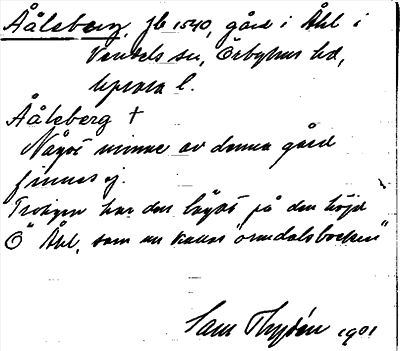 Ååleberg, jb 1540, gård i Åhl i
Vendels sn, Örbyhus hd,
Uppsala l.
Ååleberg †
Något minne av denna gård
finnes ej.
Troligen har den legat på den höjd
Ö Åhl, som nu kallas "Ormdalsbacken"
Sam Thydén 1901